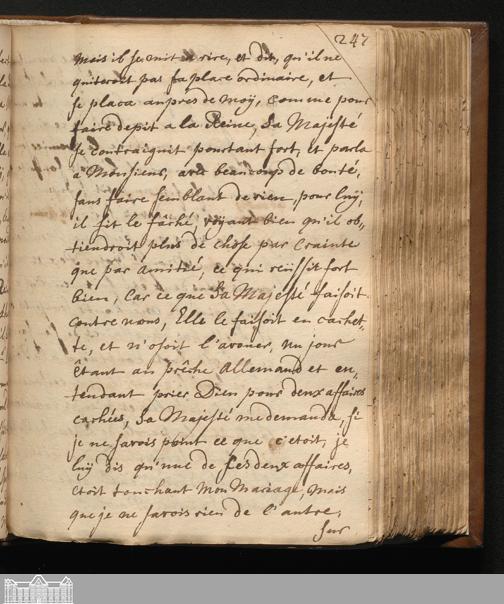 247
mais il se mit a rire, et dit, qu'il ne
quiteroit pas sa place ordinaire, et
se placa aupres de moÿ, comme pour
faire depit a la Reine, Sa Majesté
se contraignit pourtant fort, et parla
a Monsieur, avec beaucoup de bonté,
sans faire semblant de rien, pour luÿ,
il fit le fâché, voyant bien qu'il ob,,
tiendroit plus de chose par crainte
que par amitié, ce qui reüssit fort
bien, Car ce que Sa Majesté faisoit
contre nous, Elle le faisoit en cachet,,
te, et n'osoit l'avouer, un jour
Êtant au prêche Allemand et en,,
tendant prier Dieu pour deux affaires
cachées, Sa Majesté me demanda, si
je ne savois point ce que c'etoit, je
luÿ dis qu'une de ses deux affaires,
etoit touchant mon Mariage, mais
que je ne savois rien de l'autre,
Sur